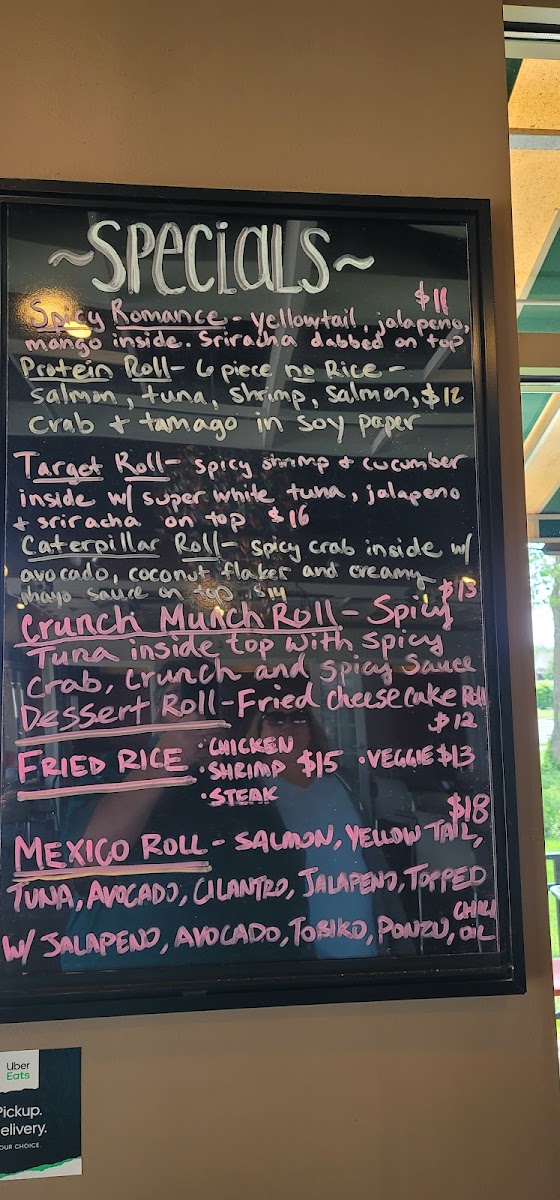 ~SPECiALS~
$11
Spicy Romance - Yellowtail, jalapeno,
mango inside. Sriracha dabbed on top
Protein Roll - 6 piece no Rice -
Salmon, tuna, shrimp, salmon, $12
Crab + tamago in soy paper
Target Roll - spicy shrimp + cucumber
inside w/ super white tuna, jalapeno
+ sriracha on top $16
Caterpillar Roll - spicy crab inside w/
avocado, coconut flakes and creamy
mayo sauce on top $14
$13
Crunch Munch Roll - Spicy
Tuna inside top with Spicy
Crab, Crunch and Spicy Sauce
Dessert Roll - Fried cheesecake Roll
$12
FRIED RICE • CHICKEN
• SHRIMP $15 • VEGGIE $13
• STEAK
$18
MEXICO ROLL - SALMON, YELLOW TAIL,
TUNA, AVOCADO, CILANTRO, JALAPENO, TOPPED
W/ JALAPENO, AVOCADO, TOBIKO, PONZU, CHILI OIL
Uber
Eats
Pickup.
elivery.
OUR CHOICE.